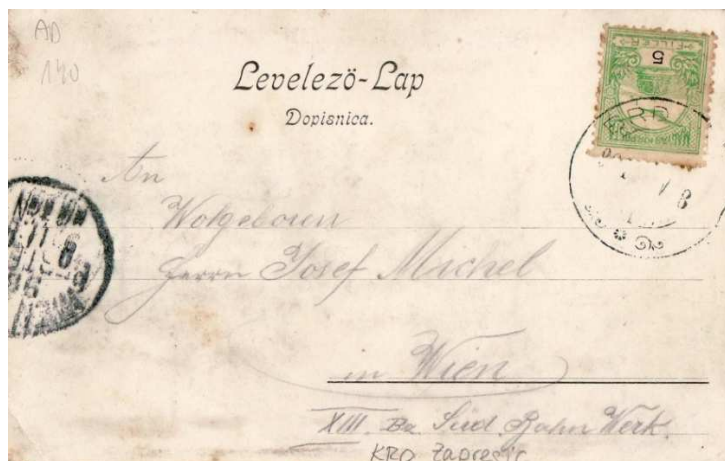 AD
140
Levelező-Lap
Dopisnica.
5
FILLÉR
An
Wolgeboren
Herrn Josef Michel
in Wien
XIII. Bz. Süd. Bahn Werk.
KRO Zapresic